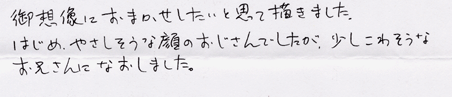 御想像におまかせしたいと思って描きました。
はじめ、やさしそうな顔のおじさんでしたが、少しこわそうな
お兄さんになおしました。